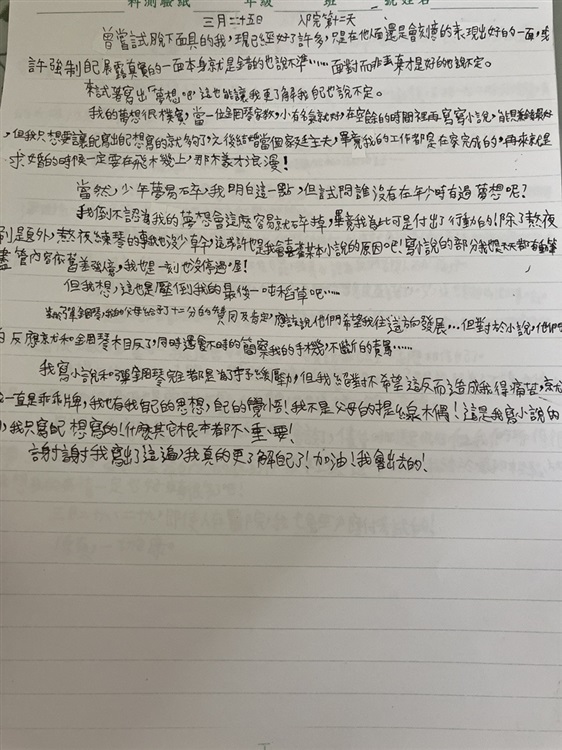 科測驗紙 年級 班 號姓名
三月二十五日 入院第十二天
曾嘗試脫下面具的我,現已經好了許多,只是在他面還是會刻意的表現出好的一面,或
許強制自己展露真實的一面本身就是錯的也說不準……面對而非丟棄才是好的也說不定。
來試著寫出「夢想」吧!這也能讓我更了解我自己也說不定。
我的夢想很樸實,當一位鋼琴家教,小有名氣就好,在空餘的時間裡再寫寫小說,能
,但我只想要讓自己寫出自己想寫的就夠了,之後結婚當個家庭主夫,畢竟我的工作都是在家完成的,再來就是
求婚的時候一定要在飛機上,那本義大浪漫!
當然,少年夢易碎,我明白這一點,但試問誰沒有在年少時有過夢想呢?
我倒不認為我的夢想會這麼容易就碎掉,畢竟我為此可是付出了行動的!除了熬夜
別是意外,熬夜練琴的事我也沒少幹,這或許也是我會喜歡某本小說的原因吧!寫小說的部分我也天天都有動筆
儘管內容依舊差強人意,我也是一刻也沒停過筆!
但我想,這也是壓倒我的最後一吨稻草吧……
彈鋼琴,我的父母給到十二分的贊同及肯定,應該說他們希望我往這方向發展…但對於小說,他們
的反應就和鋼琴相反了,同時還會不時的檢察我的手機,不斷的責罵……
我寫小說和彈鋼琴完全都是為了抒緩壓力,但我絕對不希望這反而造成我得痛苦,
一直是乖乖牌,我也有我自己的思想,自己的覺悟!我不是父母的提線木偶!這是我寫小說的
,我只寫自己想寫的!什麼其它根本都不重要!
謝謝我寫出了這遍,我真的更了解自己了!加油!我會出去的!